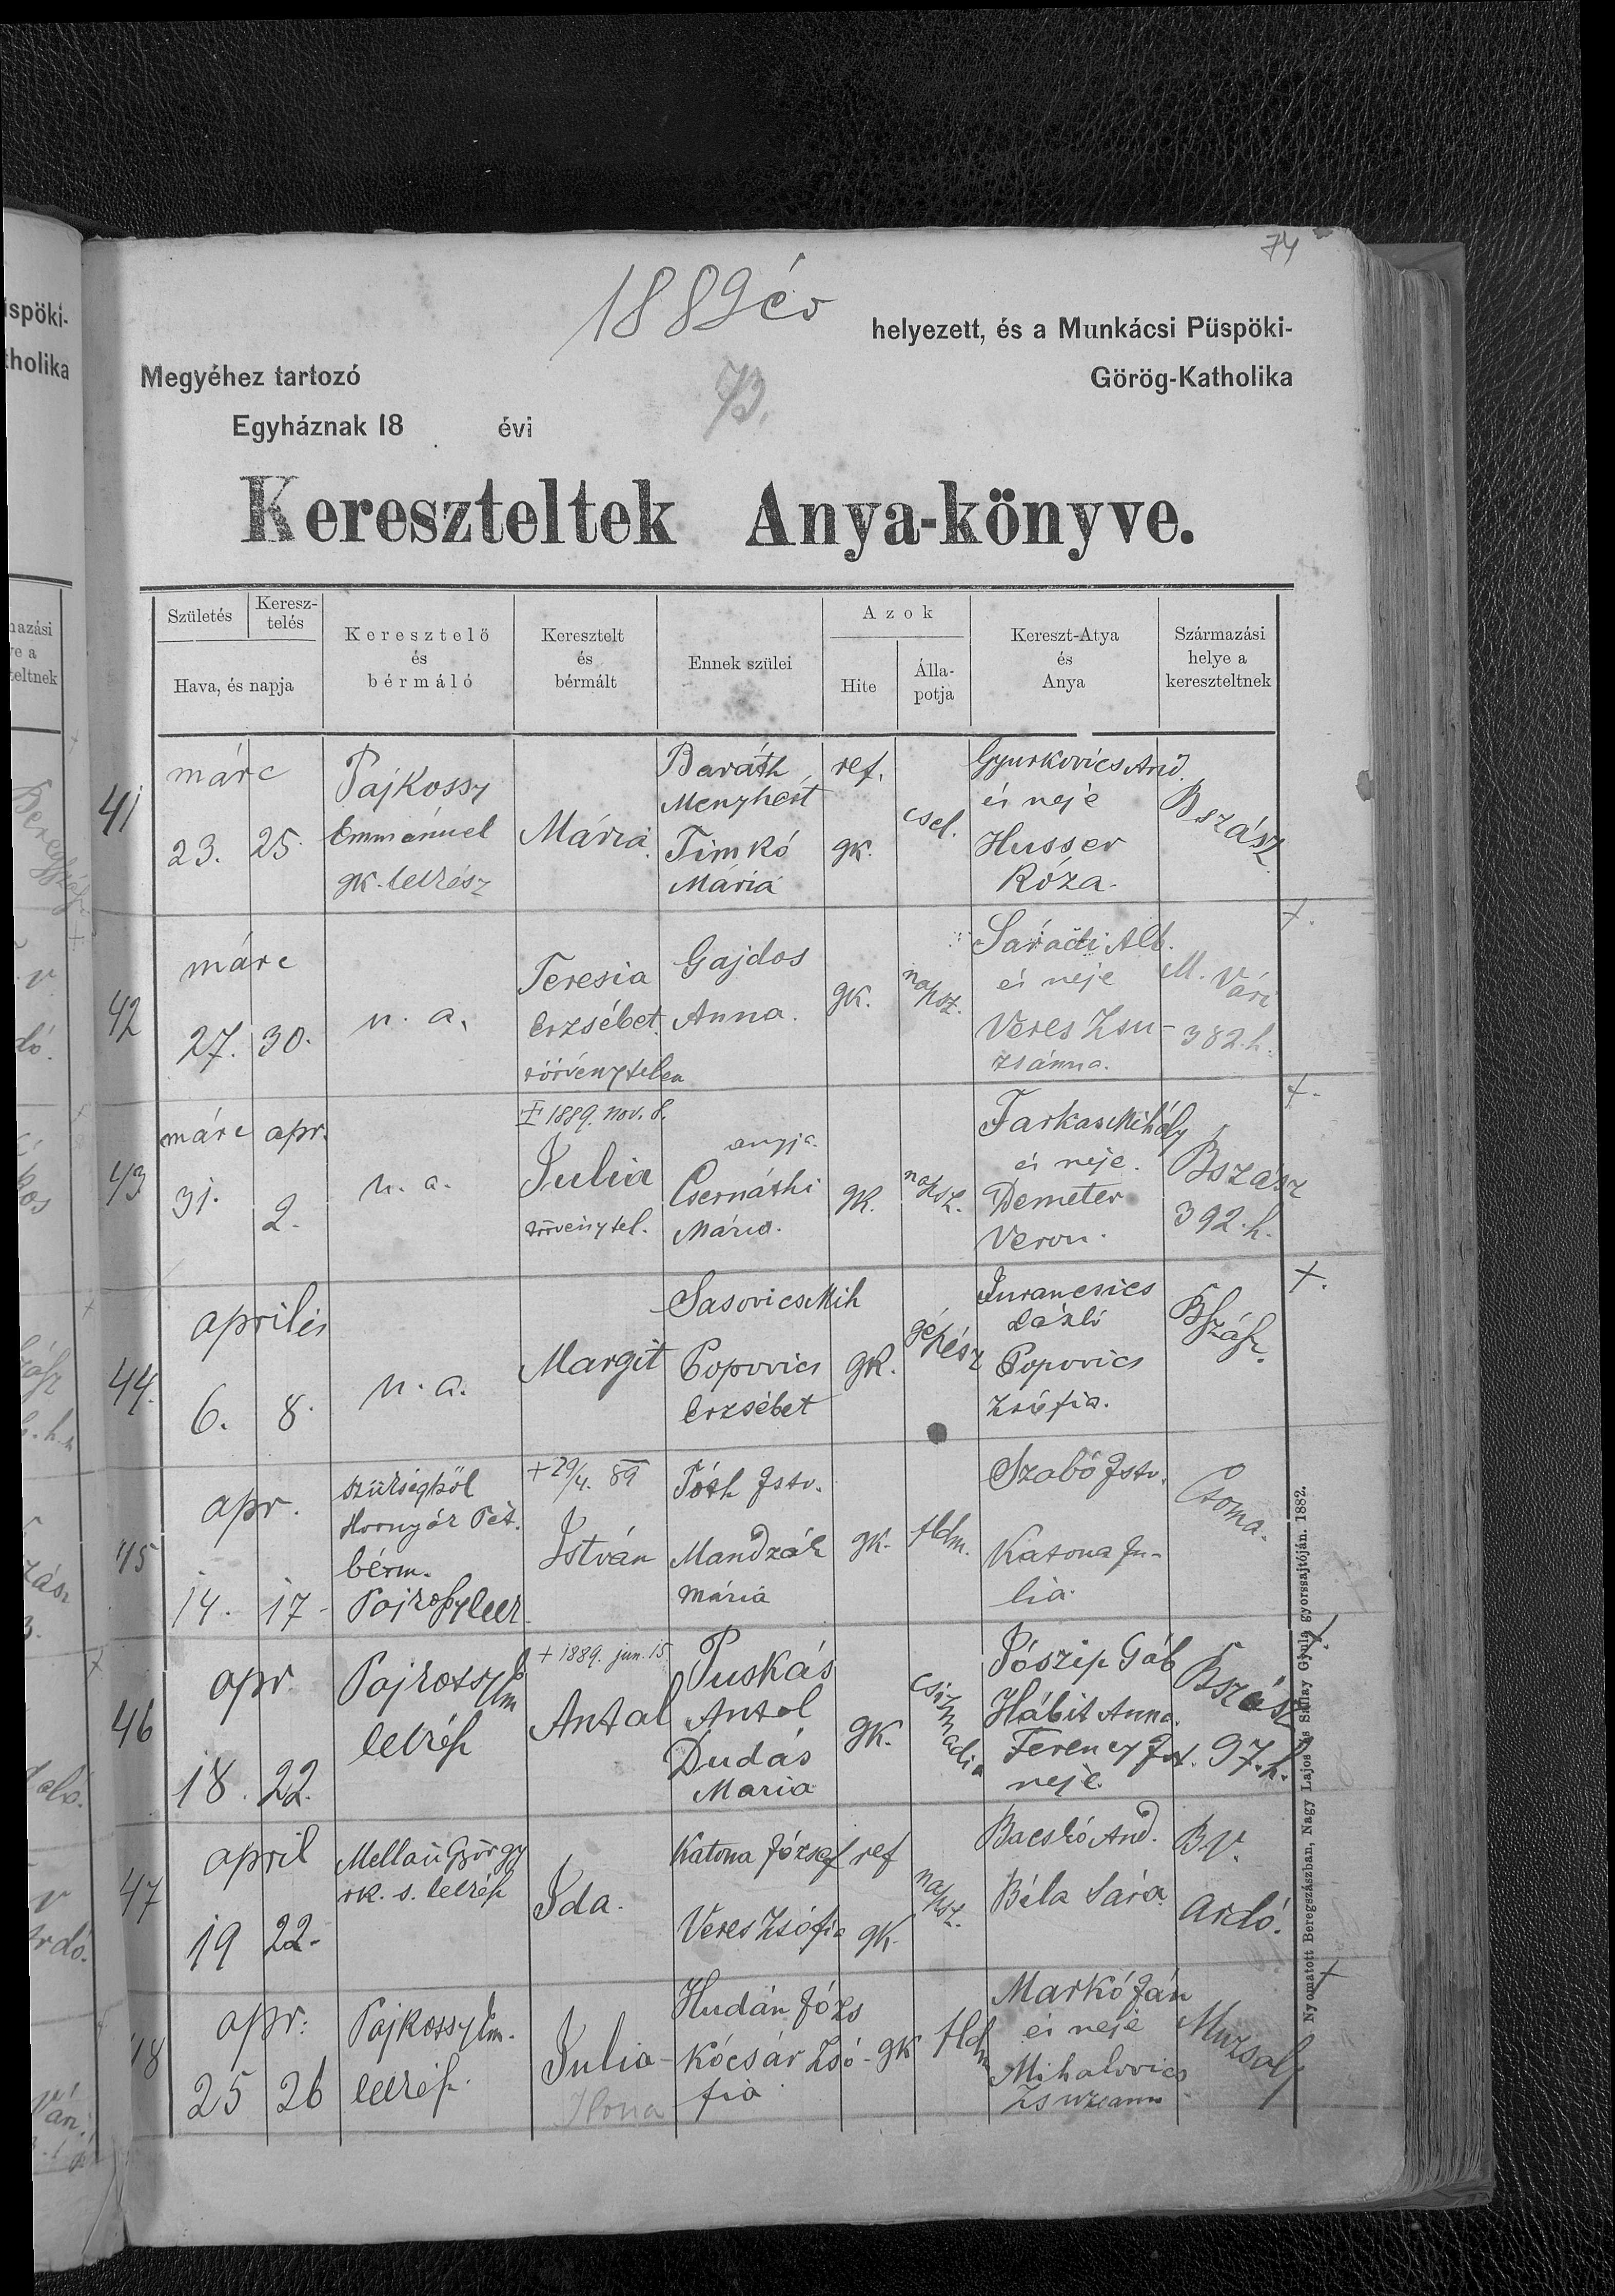 74
1889 év
helyezett, és a Munkácsi Püspöki-
Megyéhez tartozó
73.
Görög-Katholika
Egyháznak 18 évi
Kereszteltek Anya-könyve.
Születés
Keresz-
telés
Hava, és napja
Keresztelő
és
bérmáló
Keresztelt
és
bérmált
Ennek szülei
Azok
Hite
Álla-
potja
Kereszt-Atya
és
Anya
Származási
helye a
kereszteltnek
41
márc
23. 25.
Pajkossy
Emmánuel
gk. lelkész
Mária.
Baráth
Menyhért
Timkó
Mária
ref.
gk.
csel.
Gyurkovics And.
és neje
Husser
Róza.
Bszász
42
márc
27. 30.
u. a.
Teresia
Erzsébet
törvénytelen
Gajdos
Anna.
gk.
napsz.
Sárádi Alb.
és neje
Veres Zsu-
zsánna.
M. Vári
382. h.
+.
43
márc apr.
31. 2.
u. a.
+ 1889. nov. 8.
Julia
törvénytel.
anyja.
Csernáthi
Mária.
gk.
napsz.
Farkas Mihály
és neje.
Demeter
Veron.
Bszász
392. h.
+.
44.
április
6. 8.
u. a.
Margit
Sasovics Mih
Popovics
Erzsébet
gk.
gépész
Jurancsics
László
Popovics
Zsófia.
Bszász.
+.
45
apr.
14. 17.
szükségből
Hornyár Pét.
bérm.
Pajkossy lelk.
+ 29/4. 89
István
Tóth Istv.
Mandzák
Mária
gk.
fldm.
Szabó Istv.
Katona Ju-
lia.
Csoma.
46
apr
18. 22.
Pajkossy Em
lelkész
+ 1889. jun. 15.
Antal
Puskás
Antal
Dudás
Maria
gk.
csizmadia
Jószip Gáb
Hábit Anna.
Ferency Ist.
neje.
Bszász
97. h.
+
47
april
19 22.
György
rk. s. lelkész
Ida.
Katona József
Veres Zsófia
ref
gk.
napsz.
Bacskó And.
Béla Sára.
BV.
Ardó.
48
apr.
25 26
Pajkossy Em.
lelkész.
Julia
Ilona
Hudán Józs
Kócsár Zsó-
fia
gk
fldm
Markó Ján
és neje
Mihalovics
Zsuzsanna
Muzsaly
+
Nyomatott Beregszászban, Nagy Lajos és Sallay Gyula gyorssajtóján. 1882.
üspöki-
tholika